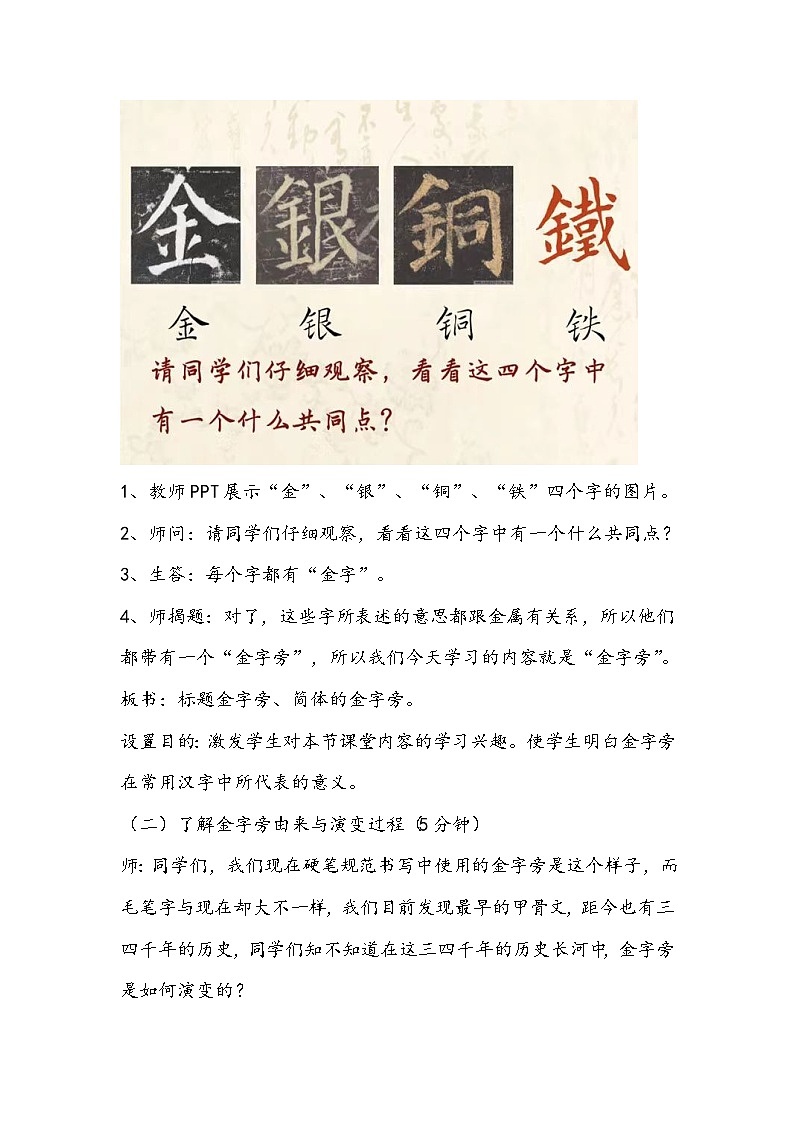 金 銀 銅 鐵
金 银 铜 铁
请同学们仔细观察，看看这四个字中
有一个什么共同点？
1、教师PPT展示“金”、“银”、“铜”、“铁”四个字的图片。
2、师问：请同学们仔细观察，看看这四个字中有一个什么共同点？
3、生答：每个字都有“金字”。
4、师揭题：对了，这些字所表述的意思都跟金属有关系，所以他们
都带有一个“金字旁”，所以我们今天学习的内容就是“金字旁”。
板书：标题金字旁、简体的金字旁。
设置目的：激发学生对本节课堂内容的学习兴趣。使学生明白金字旁
在常用汉字中所代表的意义。
（二）了解金字旁由来与演变过程（5分钟）
师：同学们，我们现在硬笔规范书写中使用的金字旁是这个样子，而
毛笔字与现在却大不一样，我们目前发现最早的甲骨文，距今也有三
四千年的历史，同学们知不知道在这三四千年的历史长河中，金字旁
是如何演变的？